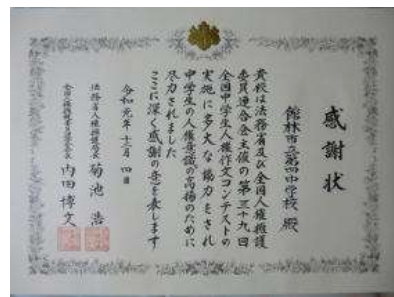 感謝状
館林市立第四中学校 殿
貴校は法務省及び全国人権擁護
委員連合会主催の第三十九回
全国中学生人権作文コンテストの
実施に多大な協力をされ
中学生の人権意識の高揚のために
尽力されました
ここに深く感謝の意を表します
令和元年十二月四日
法務省人権擁護局長 菊池浩
全国人権擁護委員連合会長 内田博文